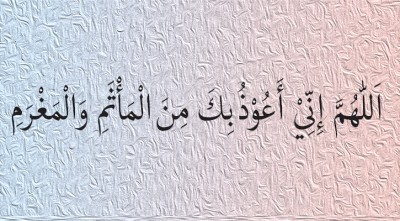 اَللّٰهُمَّ إِنِّيْ أَعُوْذُبِكَ مِنَ الْمَأْثَمِ وَالْمَغْرَمِ